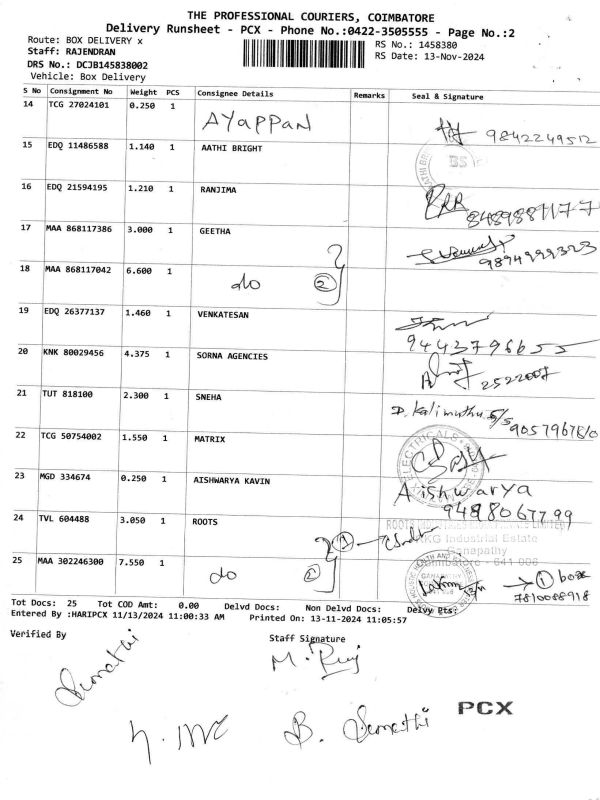 THE PROFESSIONAL COURIERS, COIMBATORE
Delivery Runsheet - PCX - Phone No.:0422-3505555 - Page No.:2
Route: BOX DELIVERY x
RS No.: 1458380
Staff: RAJENDRAN
RS Date: 13-Nov-2024
DRS No.: DCJB145838002
Vehicle: Box Delivery
S No Consignment No Weight PCS Consignee Details Remarks Seal & Signature
14 TCG 27024101 0.250 1 AYAPPAN 9842249512
15 EDQ 11486588 1.140 1 AATHI BRIGHT BS
16 EDQ 21594195 1.210 1 RANJIMA
8489881177
17 MAA 868117386 3.000 1 GEETHA
9894999323
18 MAA 868117042 6.600 1 do 2
19 EDQ 26377137 1.460 1 VENKATESAN
9443796655
20 KNK 80029456 4.375 1 SORNA AGENCIES
2522007
21 TUT 818100 2.300 1 SNEHA D. Kalimuthu
22 TCG 50754002 1.550 1 MATRIX ELECTRICALS
23 MGD 334674 0.250 1 AISHWARYA KAVIN Aishwarya
24 TVL 604488 3.050 1 ROOTS ROOTS
KG Industrial Estate
Ganapathy
Coimbatore - 641 006
25 MAA 302246300 7.550 1 do 2 GANAPATHY → 1 box
7810088918
Tot Docs: 25 Tot COD Amt: 0.00 Delvd Docs: Non Delvd Docs: Delvy Pts:
Entered By :HARIPCX 11/13/2024 11:00:33 AM Printed On: 13-11-2024 11:05:57
Verified By Staff Signature
Sumathi
B. Sumathi
PCX